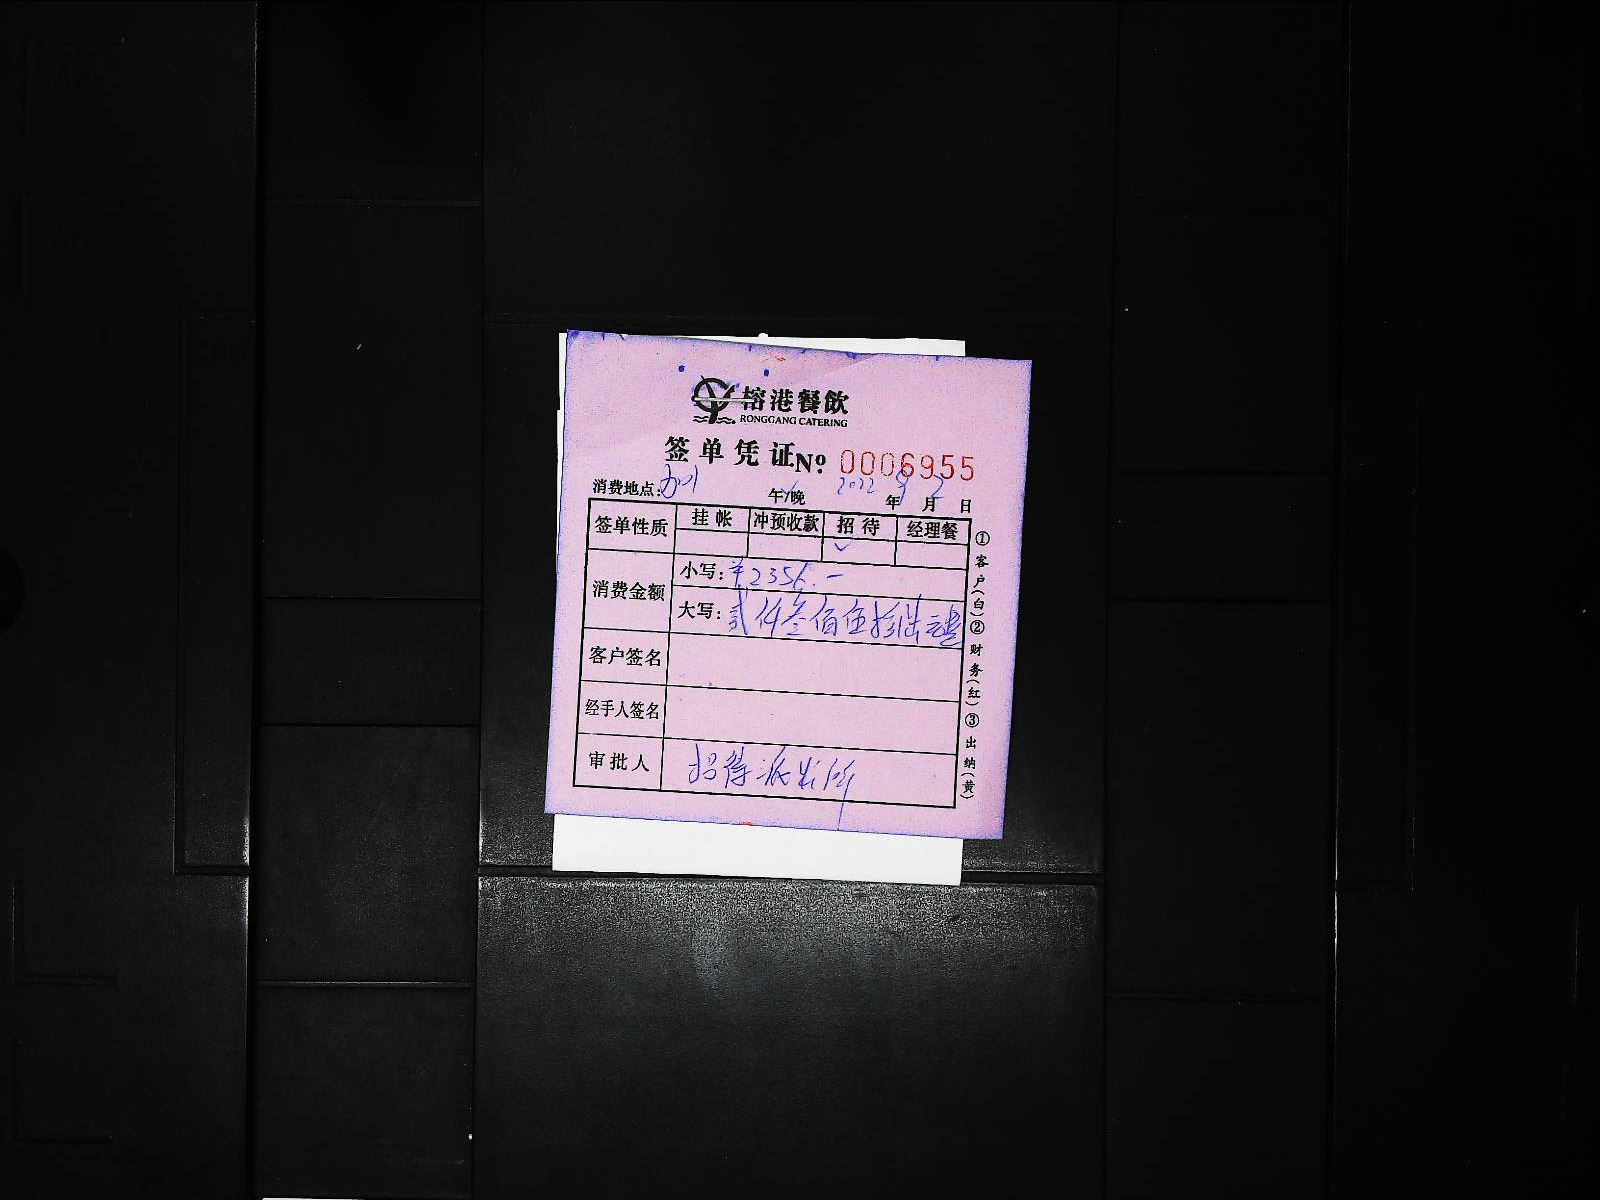 榕港餐飲
RONGGANG CATERING
签单凭证 No: 0006955
消费地点: 午/晚 2022年9月2日
签单性质 挂帐 冲预收款 招待 经理餐
✓
消费金额 小写: ¥2356.-
大写: 贰仟叁佰伍拾陆元整
客户签名
经手人签名
审批人 招待派出所
①客户(白)②财务(红)③出纳(黄)